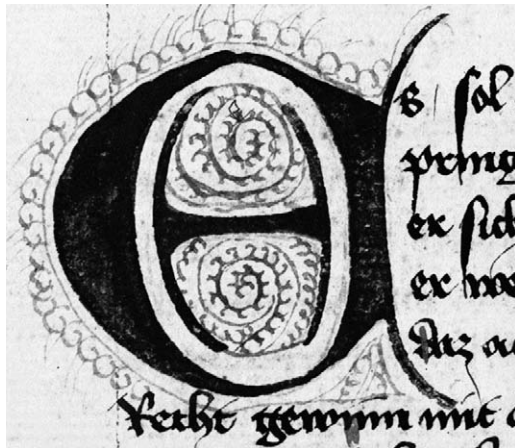 Es sol
pring
er sich
er we
daz a
Recht gewinn mit